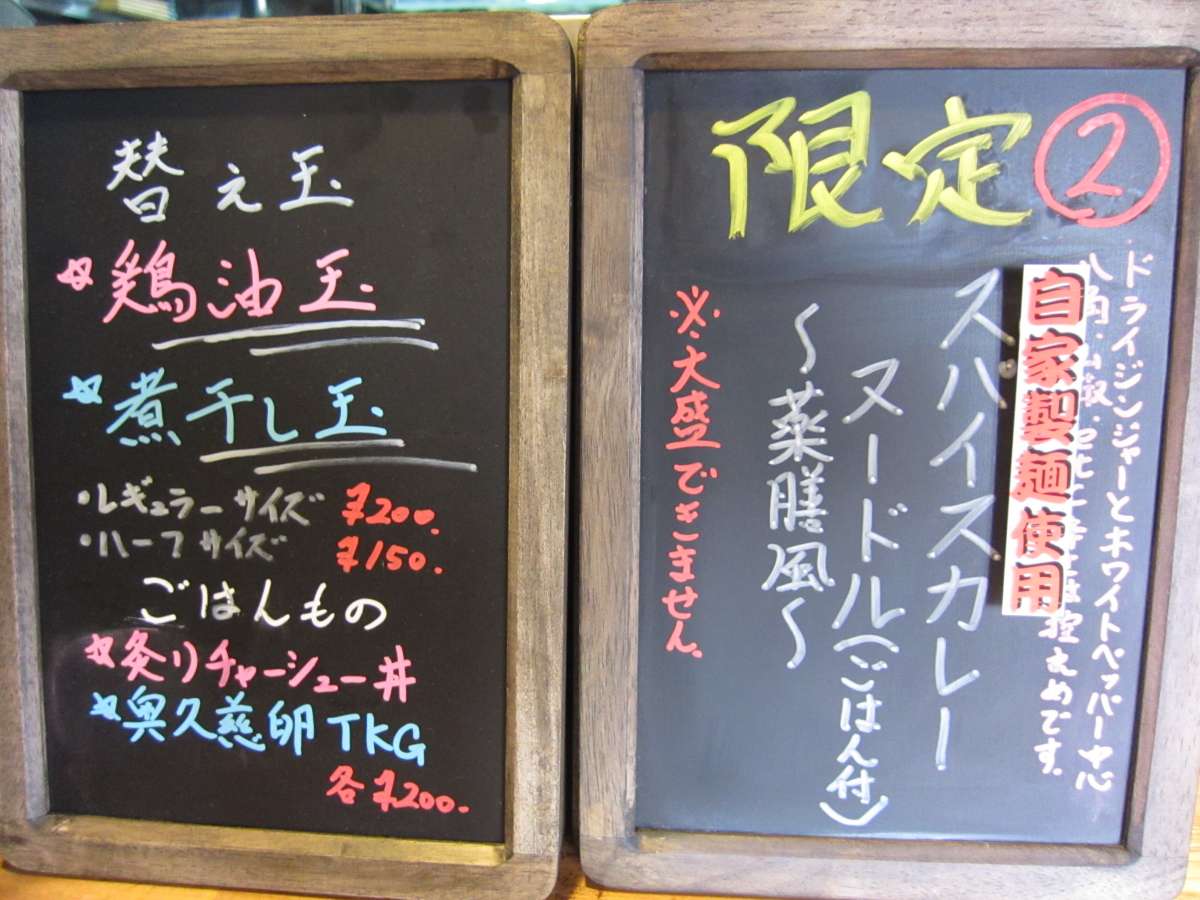 替え玉
☆鶏油玉
☆煮干し玉
・レギュラーサイズ ¥200.
・ハーフサイズ ¥150.
ごはんもの
☆炙りチャーシュー丼
☆奥久慈卵TKG
各¥200.
限定②
ドライジンジャーとホワイトペッパー中心
八角・山椒・
控えめです。
自家製麺使用
スパイスカレー
ヌードル(ごはん付)
～薬膳風～
※大盛できません。